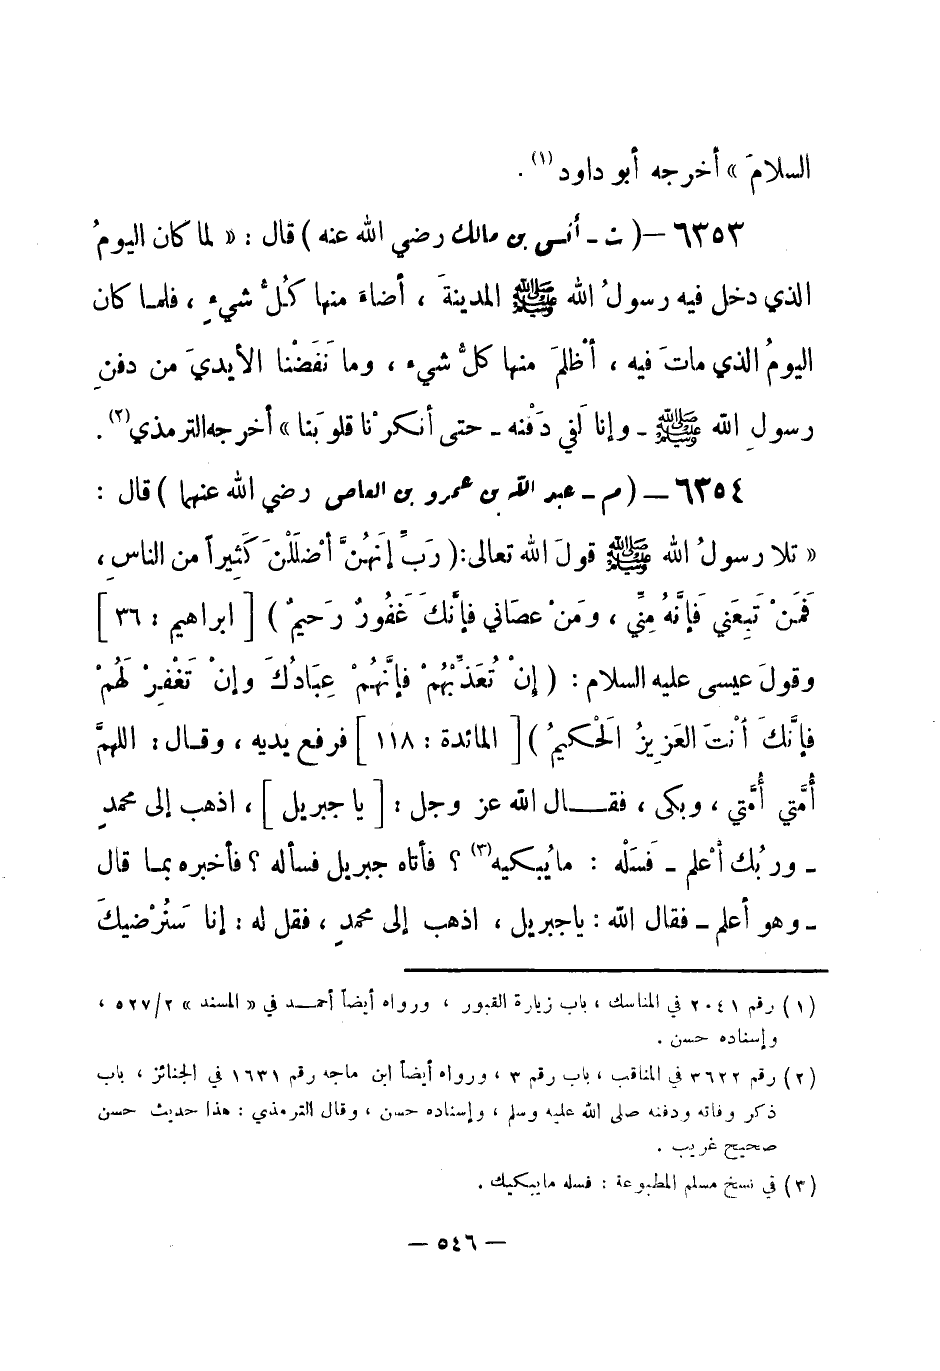 السلامَ » أخرجه أبو داود (١) .
٦٣٥٣ – ( ت ـ أنس بن مالك رضي الله عنه ) قال : « لما كان اليومُ
الذي دخل فيه رسولُ الله ﷺ المدينةَ ، أضاءَ منها كُلُّ شيءٍ ، فلمـا كان
اليومُ الذي ماتَ فيه ، أظْلمَ منها كلُّ شيء ، وما نَفَضْنا الأيديَ من دفنِ
رسولِ الله ﷺ ـ وإنا لَفي دَفْنه ـ حتى أنكرْنا قلوبَنا » أخرجه الترمذي(٢) .
٦٣٥٤ – ( م ـ عبد الله بن عمرو بن العاص رضي الله عنهما ) قال :
« تلا رسولُ الله ﷺ قولَ الله تعالى:( رَبِّ إنَّهُنَّ أضْلَلْنَ كَثِيراً من الناسِ ،
فَمَنْ تَبِعَني فَإنَّهُ مِنِّي ، ومَنْ عصَاني فإنَّكَ غَفُورٌ رَحيمٌ ) [ ابراهيم : ٣٦ ]
وقولَ عيسى عليه السلام : ( إنْ تُعَذِّبْهُمْ فإنَّهُمْ عِبَادُكَ وإنْ تَغْفِرْ لَهُمْ
فإنَّكَ أنْتَ العَزِيزُ الحَكيمُ ) [ المائدة : ١١٨ ] فرفع يديه ، وقـال : اللهمَّ
أُمَّتي أُمَّتي ، وبكى ، فقـــال الله عز وجل : [ يا جبريل ] ، اذهب إلى محمدٍ
ـ وربُك أعْلم ـ فَسَلْه : مايُبكيه(٣) ؟ فأتاه جبريل فسأله ؟ فأخبره بمـا قال
ـ وهو أعلم ـ فقال الله : ياجبريل ، اذهب إلى محمدٍ ، فقل له : إنا سَنُرْضيكَ
(١) رقم ٢٠٤١ في المناسك ، باب زيارة القبور ، ورواه أيضاً أحمــد في « المسند » ٥٢٧/٢ ،
وإسناده حسن .
(٢) رقم ٣٦٢٢ في المناقب ، باب رقم ٣ ، ورواه أيضاً ابن ماجه رقم ١٦٣١ في الجنائز ، باب
ذكر وفاته ودفنه صلى الله عليه وسلم ، وإسناده حسن ، وقال الترمذي : هذا حديث حسن
صحيح غريب .
(٣) في نسخ مسلم المطبوعة : فسله مايبكيك .
— ٥٤٦ —